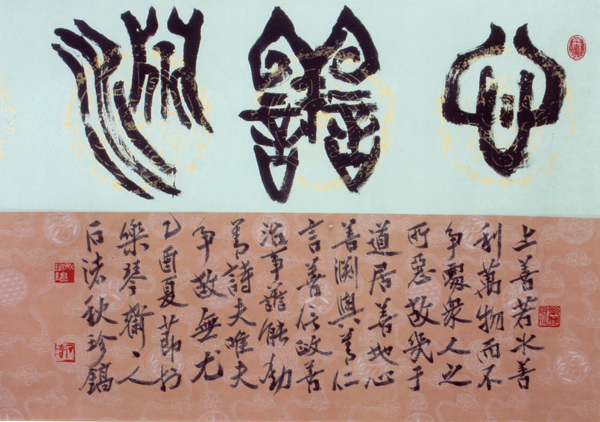 心善淵
上善若水善
利萬物而不
爭處衆人之
所惡故幾于
道居善地心
善渊與善仁
言善信政善
治事善能動
善詩夫唯夫
爭故無尤
乙酉夏節於
樂琴齋主人
秋珍鎬